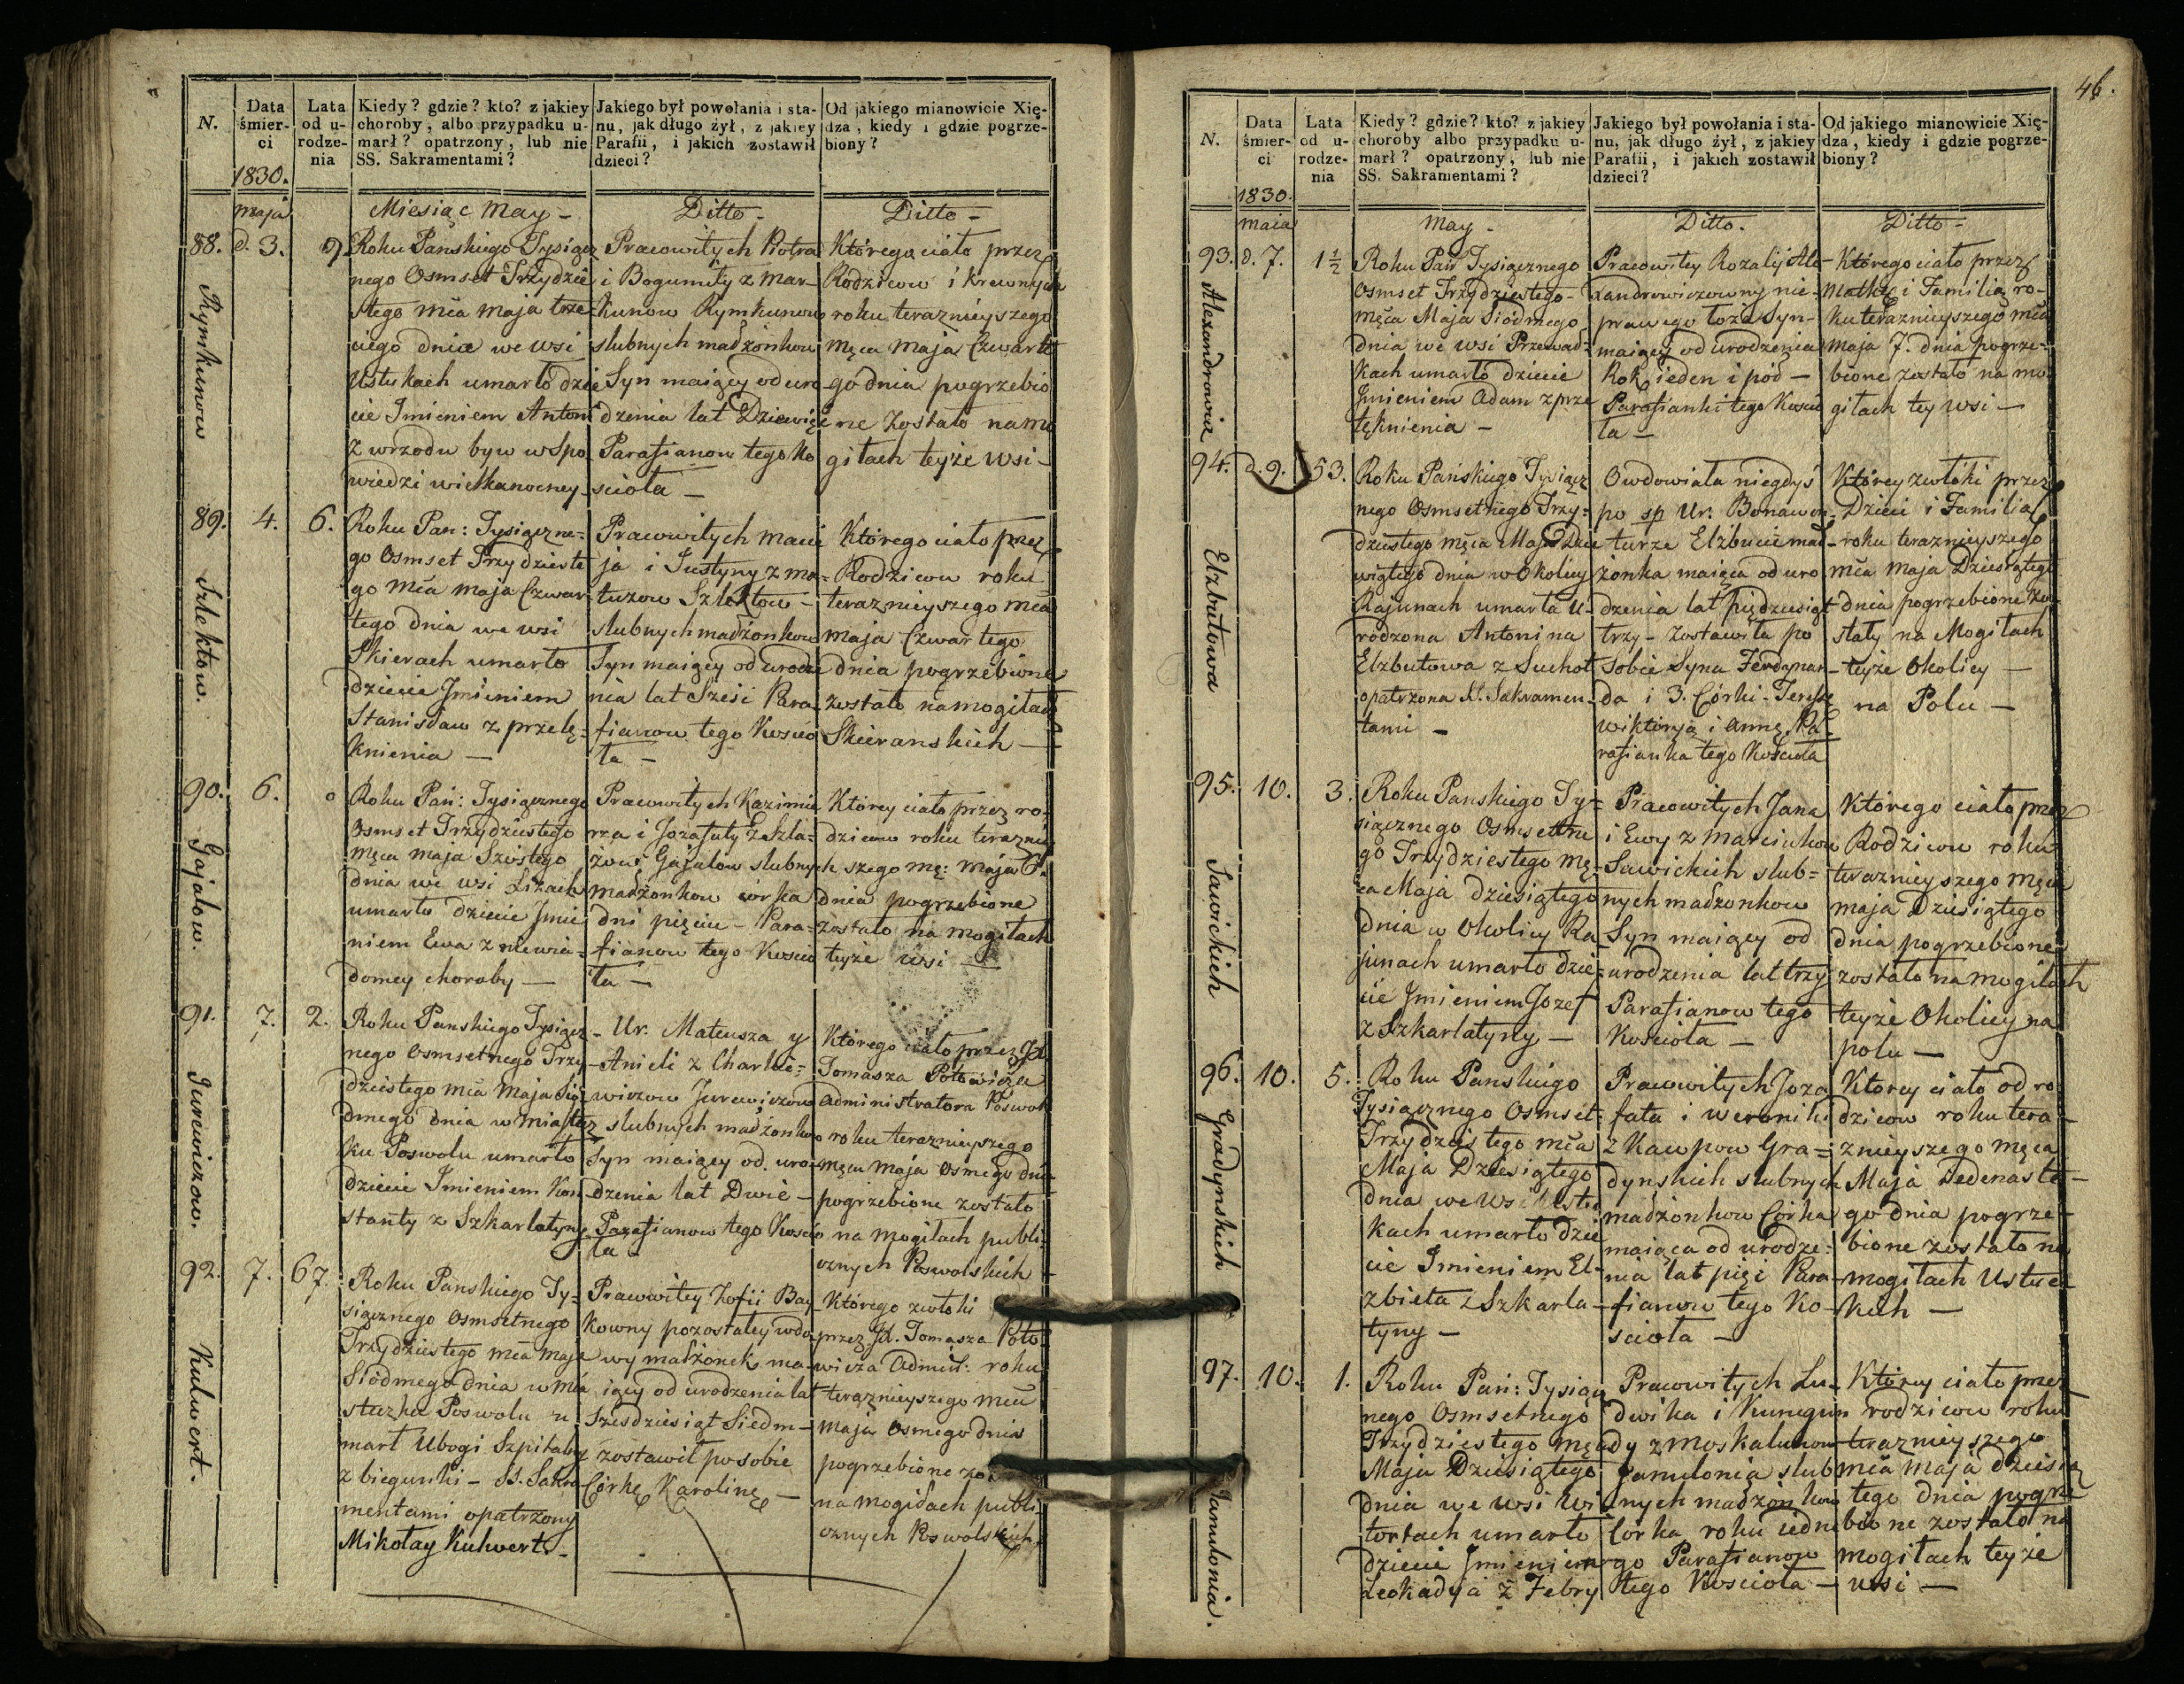 N.
Data śmier-
ci
1830.
Lata
od u-
rodze-
nia
Kiedy? gdzie? kto? z jakiey
choroby, albo przypadku u-
marł? opatrzony, lub nie
SS. Sakramentami?
Jakiego był powołania i sta-
nu, jak długo żył, z jakiey
Parafii, i jakich zostawił
dzieci?
Od jakiego mianowicie Xię-
dza, kiedy i gdzie pogrze-
biony?
maja
Miesiąc May -
Ditto -
Ditto -
88. d. 3. 9
Rymkunow
Roku Pańskiego Tysiącz
nego Osmset Trzydzie
stego mca maja trze-
ciego dnia we wsi
Ustukach umarło dzie
cie Jmieniem Antoni
z wrzodu byw w Spo
wiedzi wielkanocney
Pracowitych Piotra
i Bogumiły z Mar-
kunow Rymkunow
slubnych madżonkow
Syn maiący od uro
dzenia lat Dziewięć
Parafianow tego Ko
scioła -
Którego ciało przez
Rodzicow i Krewnych
roku teraznieyszego
męca Maja Czwarte
go dnia pogrzebio
ne zostało na mo
giłach teyże wsi -
89. 4. 6.
Szlektow.
Roku Pan: Tysiączne=
go Osmset Trzydzieste
go mca maja Czwar
tego dnia we wsi
Skierach umarło
dziecie Jmieniem
Stanisław z przelę=
knienia -
Pracowitych Macie
ja i Justyny z Ma=
tuzow Szlektow -
slubnych madżonkow
Syn maiący od urodze
nia lat Sześć Para-
fianow tego Koscio
ła -
Którego ciało przez
Rodzicow roku
teraznieyszego mca
maja Czwartego
dnia pogrzebione
zostało na mogiłach
Skieranskich -
90. 6. 0
Gajalow.
Roku Pań: Tysiącznego
Osmset Trzydziestego
męca maja Szóstego
dnia we wsi Liżach
umarło dziecie Jmie
niem Ewa z niewia=
domey choroby -
Pracowitych Kazimie
rza i Jozafaty
Gajalow slubnych
madżonkow corka
dni pięciu - Para=
fianow tego Koscio
ła -
Którey ciało przez ro-
dzicow roku teraznie
szego mę: maja 6.
dnia pogrzebione
zostało na mogiłach
teyże wsi -
91. 7. 2.
Jurewiczow.
Roku Panskiego Tysiącz
nego Osmsetnego Trzy
dziestego mca Maja Sió
dmego dnia w Miastecz
ku Poswolu umarło
dziecie Jmieniem Kon
stanty z Szkarlatyny
- Ur. Mateusza y
- Anieli z Charkie=
wiczow Jurewiczow
slubnych madżonkow
Syn maiący od uro
dzenia lat Dwie -
Parafianow tego Koscio
ła -
Którego ciało przez Jx.
Tomasza Potowicza
Administratora Poswol
roku teraznieyszego
męca Maja Osmego dnia
pogrzebione zostało
na mogiłach publi
cznych Poswolskich -
92. 7. 67.
Kulwert.
Roku Panskiego Ty=
siącznego Osmsetnego
Trzydziestego mca Maja
Siódmego dnia w Mia
steczku Poswolu u
marł Ubogi Szpitalny
z biegunki - SS. Sakra
mentami opatrzony
Mikołay Kulwert -
Pracowitey Zofii Bay
kowny pozostałey wdo
wy małżonek ma-
iący od urodzenia lat
Szesdziesiąt Siedm -
zostawił po sobie
Córkę Karolinę -
Którego zwłoki
przez Jx. Tomasza Poto
wicza Admin: roku
teraznieyszego mca
maja Osmego dnia
pogrzebione zo
na mogiłach publi
cznych Poswolskich.
46.
N.
Data
śmier-
ci
1830.
Lata
od u-
rodze-
nia
Kiedy? gdzie? kto? z jakiey
choroby albo przypadku u-
marł? opatrzony, lub nie
SS. Sakramentami?
Jakiego był powołania i sta-
nu, jak długo żył, z jakiey
Parafii, i jakich zostawił
dzieci?
Od jakiego mianowicie Xię-
dza, kiedy i gdzie pogrze-
biony?
maia
May -
Ditto.
Ditto -
93. d. 7. 1½
Alexandrowicz
Roku Pań Tysiącznego
Osmset Trzydziestego -
męca Maja Siódmego
dnia we wsi Przewad=
kach umarło dziecie
Jmieniem Adam z prze
lęknienia -
Pracowitey Rozalij Ale
xandrowiczowny nie-
prawego łoża Syn-
maiący od urodzenia
Rok ieden i pół -
Parafianki tego Koscio
ła -
Którego ciało przez
Matkę i Familią ro-
ku teraznieyszego mca
maja 7. dnia pogrze-
bione zostało na mo
giłach tey wsi -
94. d. 9. 53.
Elzbutowa
Roku Pańskiego Tysiącz
nego Osmsetnego Trzy=
dziestego męca Maja Dzie
wiątego dnia w Okolicy
Rajunach umarła U-
rodzona Antonina
Elzbutowa z Suchot
opatrzona S. Sakramen
tami -
Owdowiała niegdyś
po sp Ur. Bonawen-
turze Elzbucie mał-
żonka maiąca od uro
dzenia lat pięćdziesiąt
trzy - zostawiła po
sobie Syna Ferdynan
da i 3. Córki - Teressę
Wiktoryą i Annę, Pa
rafianka tego Kościoła
Którey zwłoki przez
Dzieci i Familią
roku teraznieyszego
mca Maja Dziesiątego
dnia pogrzebione zo-
stały na Mogiłach
teyże Okolicy -
na Polu -
95. 10. 3.
Sawickich
Roku Panskiego Ty=
siącznego Osmsetne
go Trzydziestego mę-
ca Maja dziesiątego
dnia w Okolicy Ra
junach umarło dzie
cie Jmieniem Jozef
z Szkarlatyny -
Pracowitych Jana
i Ewy z Marcinkow
Sawickich slub=
nych madżonkow
Syn maiący od
urodzenia lat trzy
Parafianow tego
Kościoła -
Którego ciało przez
Rodzicow roku
teraznieyszego męca
maja Dziesiątego
dnia pogrzebione
zostało na mogiłach
teyże Okolicy na
polu -
96. 10. 5.
Gradynskich
Roku Panskiego
Tysiącznego Osmset
Trzydziestego mca
Maja Dziesiątego
dnia we Wsi Ustu
kach umarło dzie
cie Jmieniem El-
zbieta z Szkarla-
tyny -
Pracowitych Joza
fata i Weroniki
z Kaupow Gra=
dynskich slubnych
madżonkow Córka
maiąca od urodze=
nia lat pięć Para-
fianow tego Ko-
scioła -
Ktorey ciało od ro
dzicow roku tera-
znieyszego męca
Maja Jedenaste-
go dnia pogrze-
bione zostało na
mogiłach Ustuc
kich -
97. 10. 1.
Janulonia.
Roku Pań: Tysiącz
nego Osmsetnego
Trzydziestego męca
Maja Dziesiątego
dnia we wsi Wi
tortach umarło
dziecie Jmieniem
Leokadyia z Febry
Pracowitych Lu-
dwika i Kunegun
dy z Moskalunow
Janulonia slub
nych madżonkow
Córka roku iedne
go Parafianow
tego Koscioła -
Którey ciało przez
rodzicow roku
teraznieyszego
mca Maja dziesią
tego dnia pogrze
bione zostało na
mogiłach teyże
wsi -